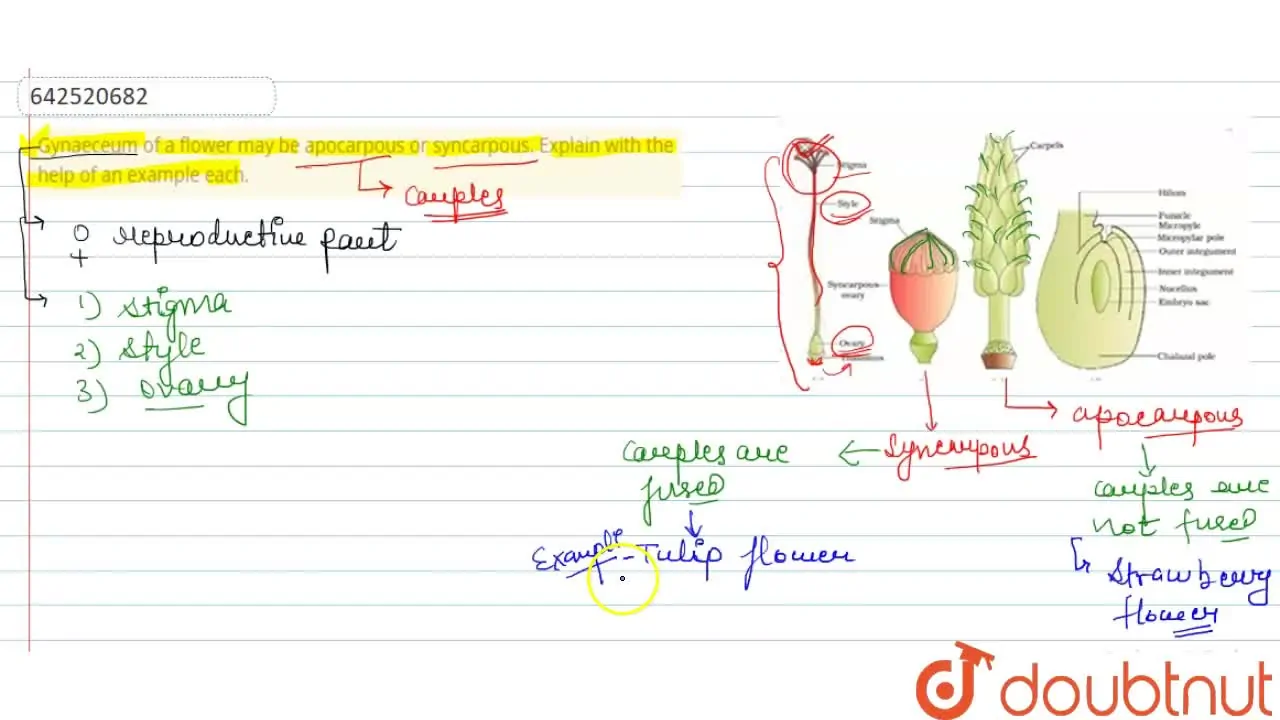 642520682
Gynaeceum of a flower may be apocarpous or syncarpous. Explain with the
help of an example each.
carples
♀ reproductive part
1) Stigma
2) Style
3) Ovary
Stigma
Style
Stigma
Syncarpous
ovary
Ovary
Thalamus
Carpels
Hilum
Funicle
Micropyle
Micropylar pole
Outer integument
Inner integument
Nucellus
Embryo sac
Chalazal pole
apocarpous
Syncarpous
carples are
fused
carples are
not fused
Example - Tulip flower
Strawberry
flower
doubtnut